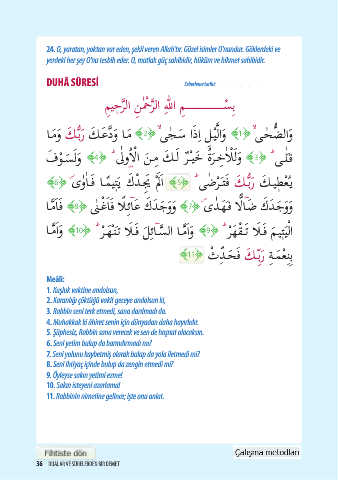 24. O, yaratan, yoktan var eden, şekil veren Allah'tır. Güzel isimler O'nundur. Göklerdeki ve
yerdeki her şey O'nu tesbih eder. O, mutlak güç sahibidir, hüküm ve hikmet sahibidir.
DUHÂ SÛRESİ
بِسْمِ اللهِ الرَّحْمٰنِ الرَّحِيمِ
وَالضُّحٰىۙ ﴿1﴾ وَالَّيْلِ اِذَا سَجٰىۙ ﴿2﴾ مَا وَدَّعَكَ رَبُّكَ وَمَا
قَلٰىۜ ﴿3﴾ وَلَلْاٰخِرَةُ خَيْرٌ لَكَ مِنَ الْاُو۫لٰىۜ ﴿4﴾ وَلَسَوْفَ
يُعْط۪يكَ رَبُّكَ فَتَرْضٰىۜ ﴿5﴾ اَلَمْ يَجِدْكَ يَت۪يمًا فَاٰوٰىۖ ﴿6﴾
وَوَجَدَكَ ضَٓالًّا فَهَدٰىۖ ﴿7﴾ وَوَجَدَكَ عَٓائِلًا فَاَغْنٰىۜ ﴿8﴾ فَاَمَّا
الْيَت۪يمَ فَلَا تَقْهَرْۜ ﴿9﴾ وَاَمَّا السَّٓائِلَ فَلَا تَنْهَرْۜ ﴿10﴾ وَاَمَّا
بِنِعْمَةِ رَبِّكَ فَحَدِّثْ ﴿11﴾
Meâli:
1. Kuşluk vaktine andolsun,
2. Karanlığı çöktüğü vakit geceye andolsun ki,
3. Rabbin seni terk etmedi, sana darılmadı da.
4. Muhakkak ki âhiret senin için dünyadan daha hayırlıdır.
5. Şüphesiz, Rabbin sana verecek ve sen de hoşnut olacaksın.
6. Seni yetim bulup da barındırmadı mı?
7. Seni yolunu kaybetmiş olarak bulup da yola iletmedi mi?
8. Seni ihtiyaç içinde bulup da zengin etmedi mi?
9. Öyleyse sakın yetimi ezme!
10. Sakın isteyeni azarlama!
11. Rabbinin nimetine gelince; işte onu anlat.
Fihriste dön
Çalışma metodları
36